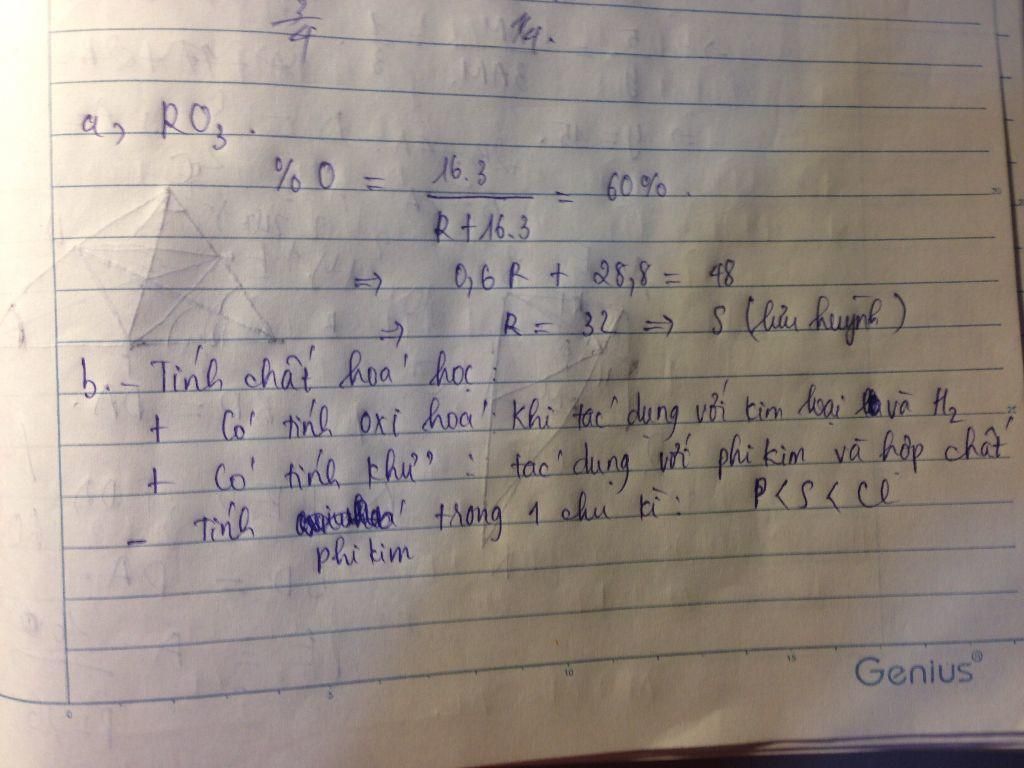 3/4 14.
a, RO₃.
% O = 16.3 / (R + 16.3) = 60%.
=> 0,6 R + 28,8 = 48
=> R = 32 => S (lưu huỳnh)
b. - Tính chất hoá học:
+ Có tính oxi hoá: khi tác dụng với kim loại và H₂
+ Có tính khử: tác dụng với phi kim và hợp chất
- Tính phi kim trong 1 chu kì: P < S < Cl
0 5 10 15
Genius